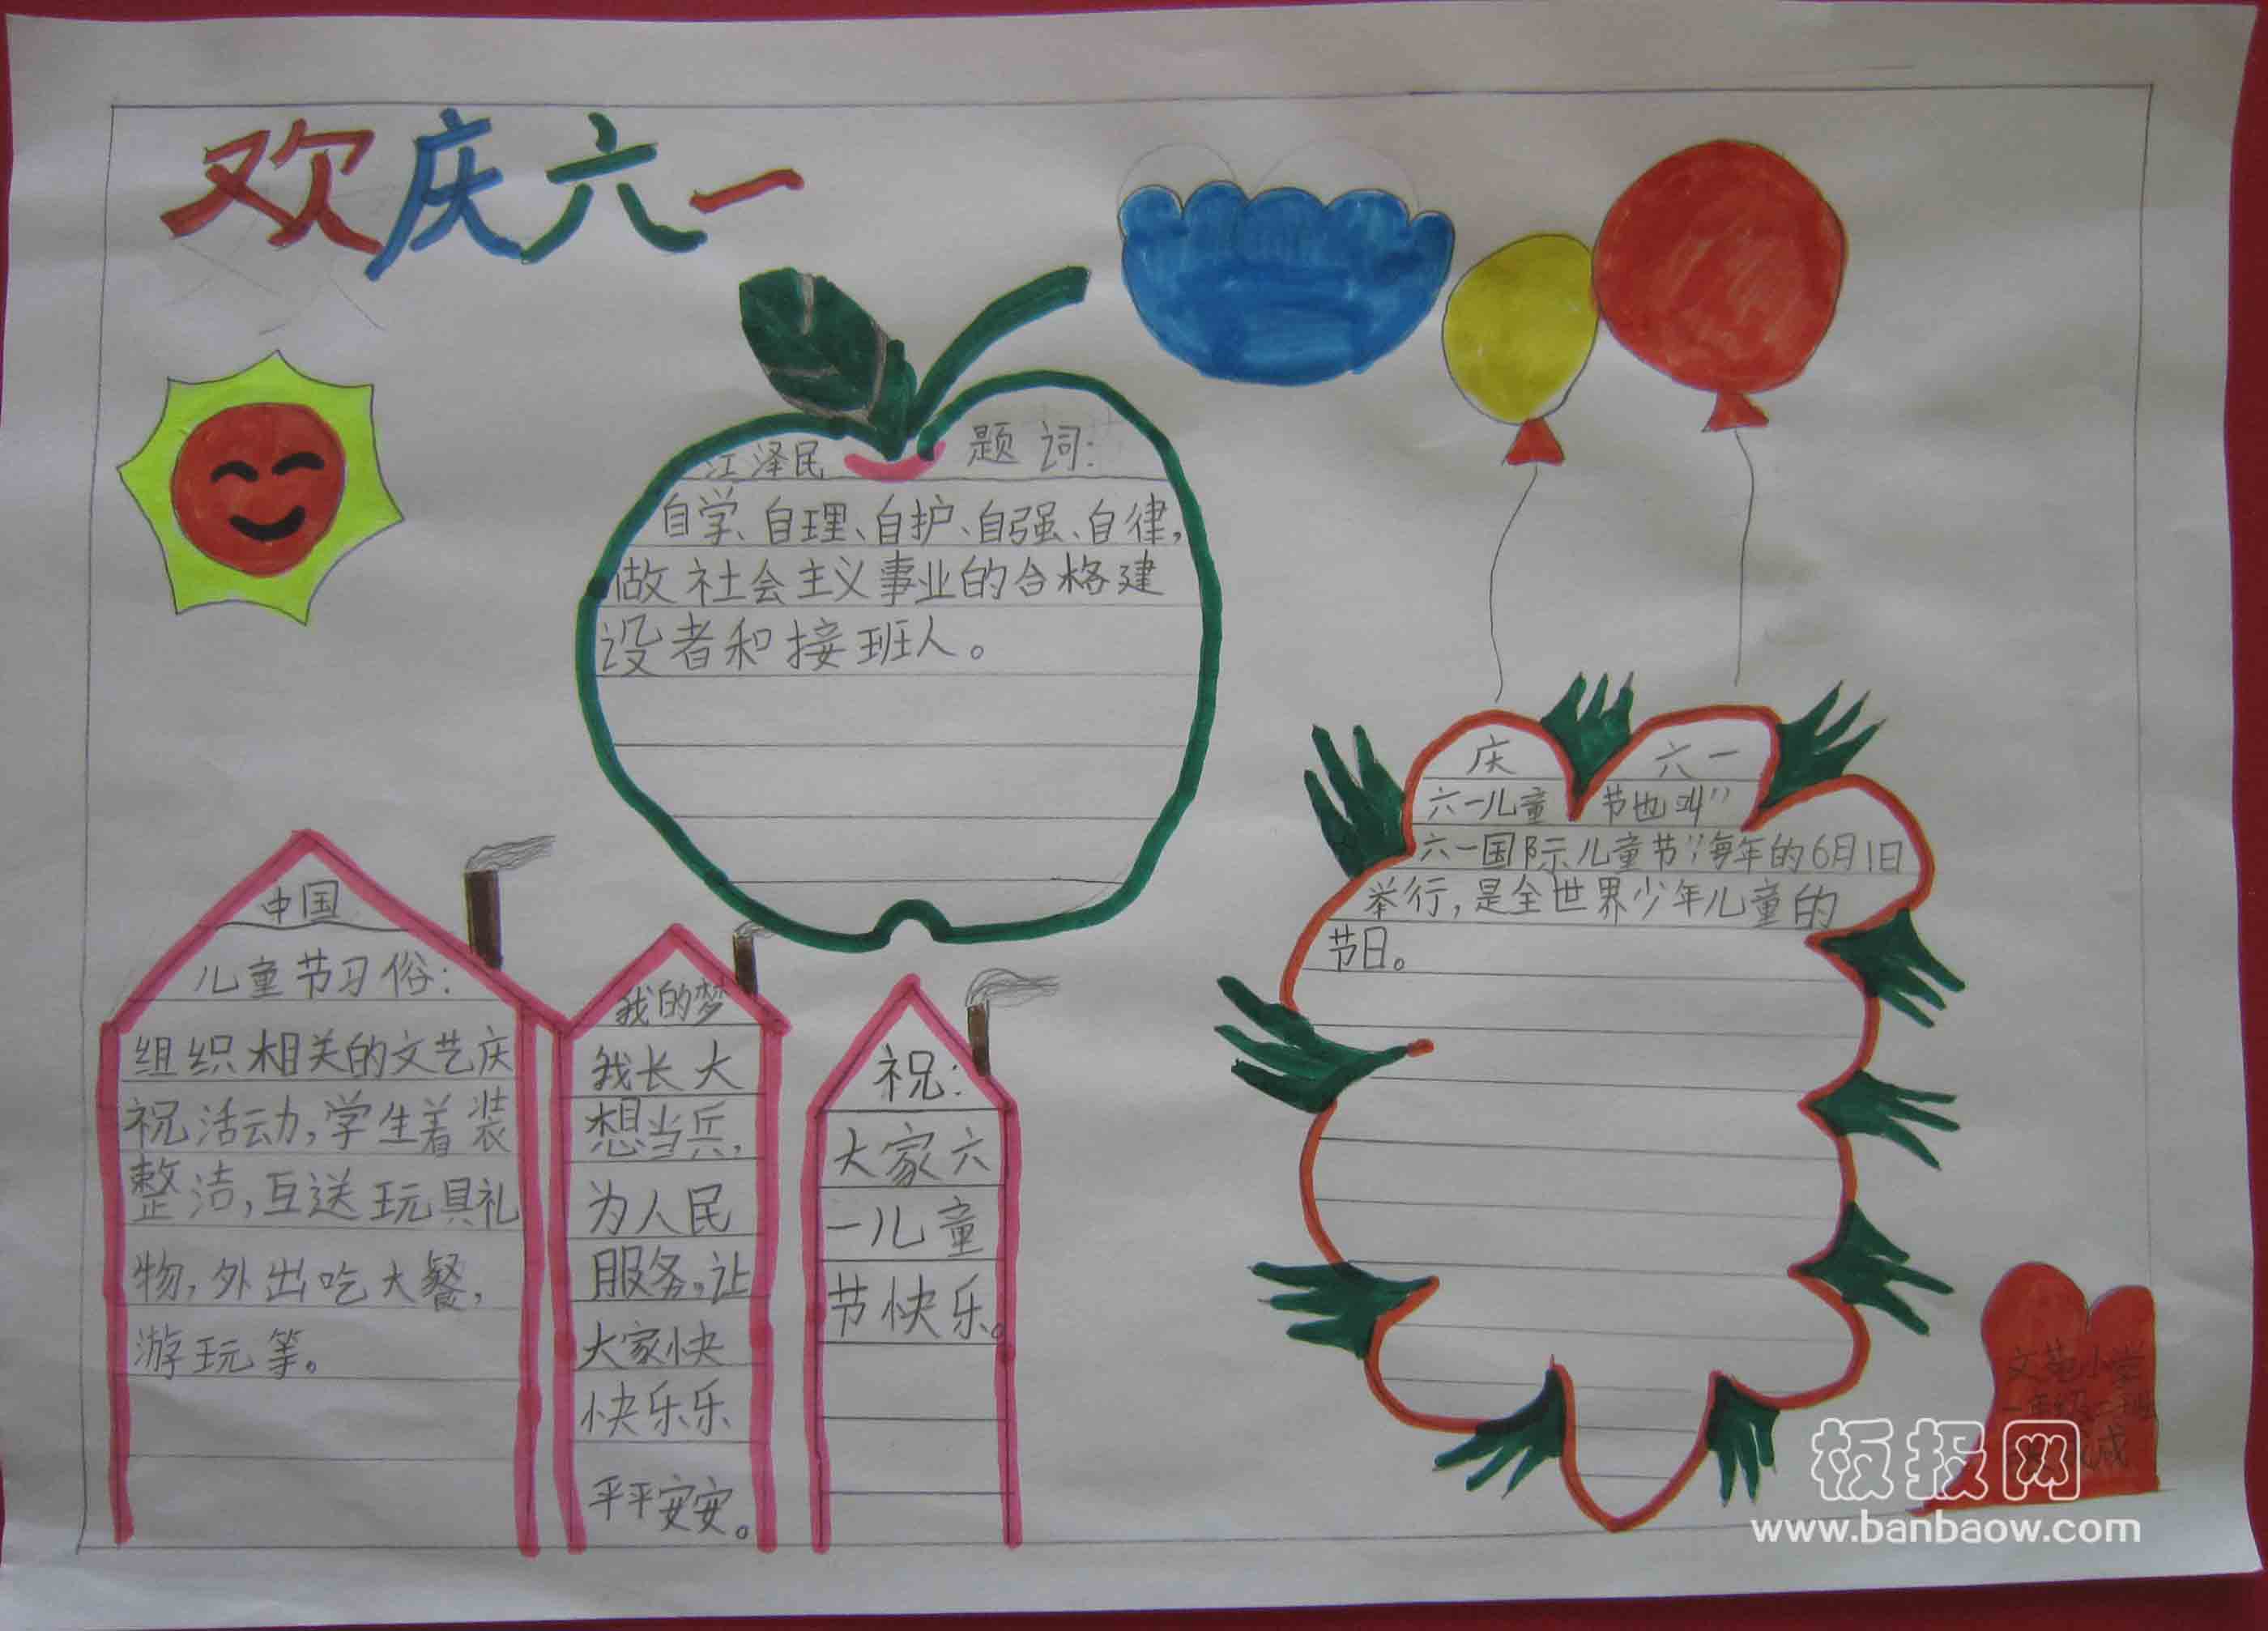 欢庆六一
江泽民 题词:
自学、自理、自护、自强、自律,
做社会主义事业的合格建
设者和接班人。
中国
儿童节习俗:
组织相关的文艺庆
祝活动,学生着装
整洁,互送玩具礼
物,外出吃大餐,
游玩等。
我的梦
我长大
想当兵,
为人民
服务。让
大家快
快乐乐
平平安安。
祝:
大家六
一儿童
节快乐。
庆 六一
六一儿童 节也叫"
六一国际儿童节"每年的6月1日
举行,是全世界少年儿童的
节日。
文苑小学
一年级二班
诚
板报网
www.banbaow.com